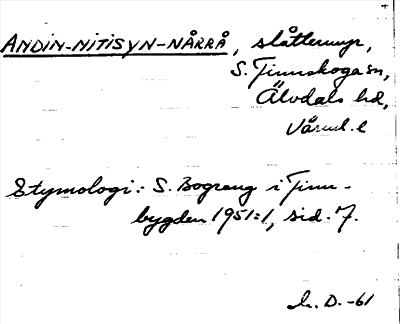 ANDIN-NITISYN-NÅRRÅ, slåttermyr,
S. Finnskoga sn,
Älvdals hd,
Värml. l
Etymologi: S. Bograng i Finn-
bygden 1951:1, sid. 7.
D. -61